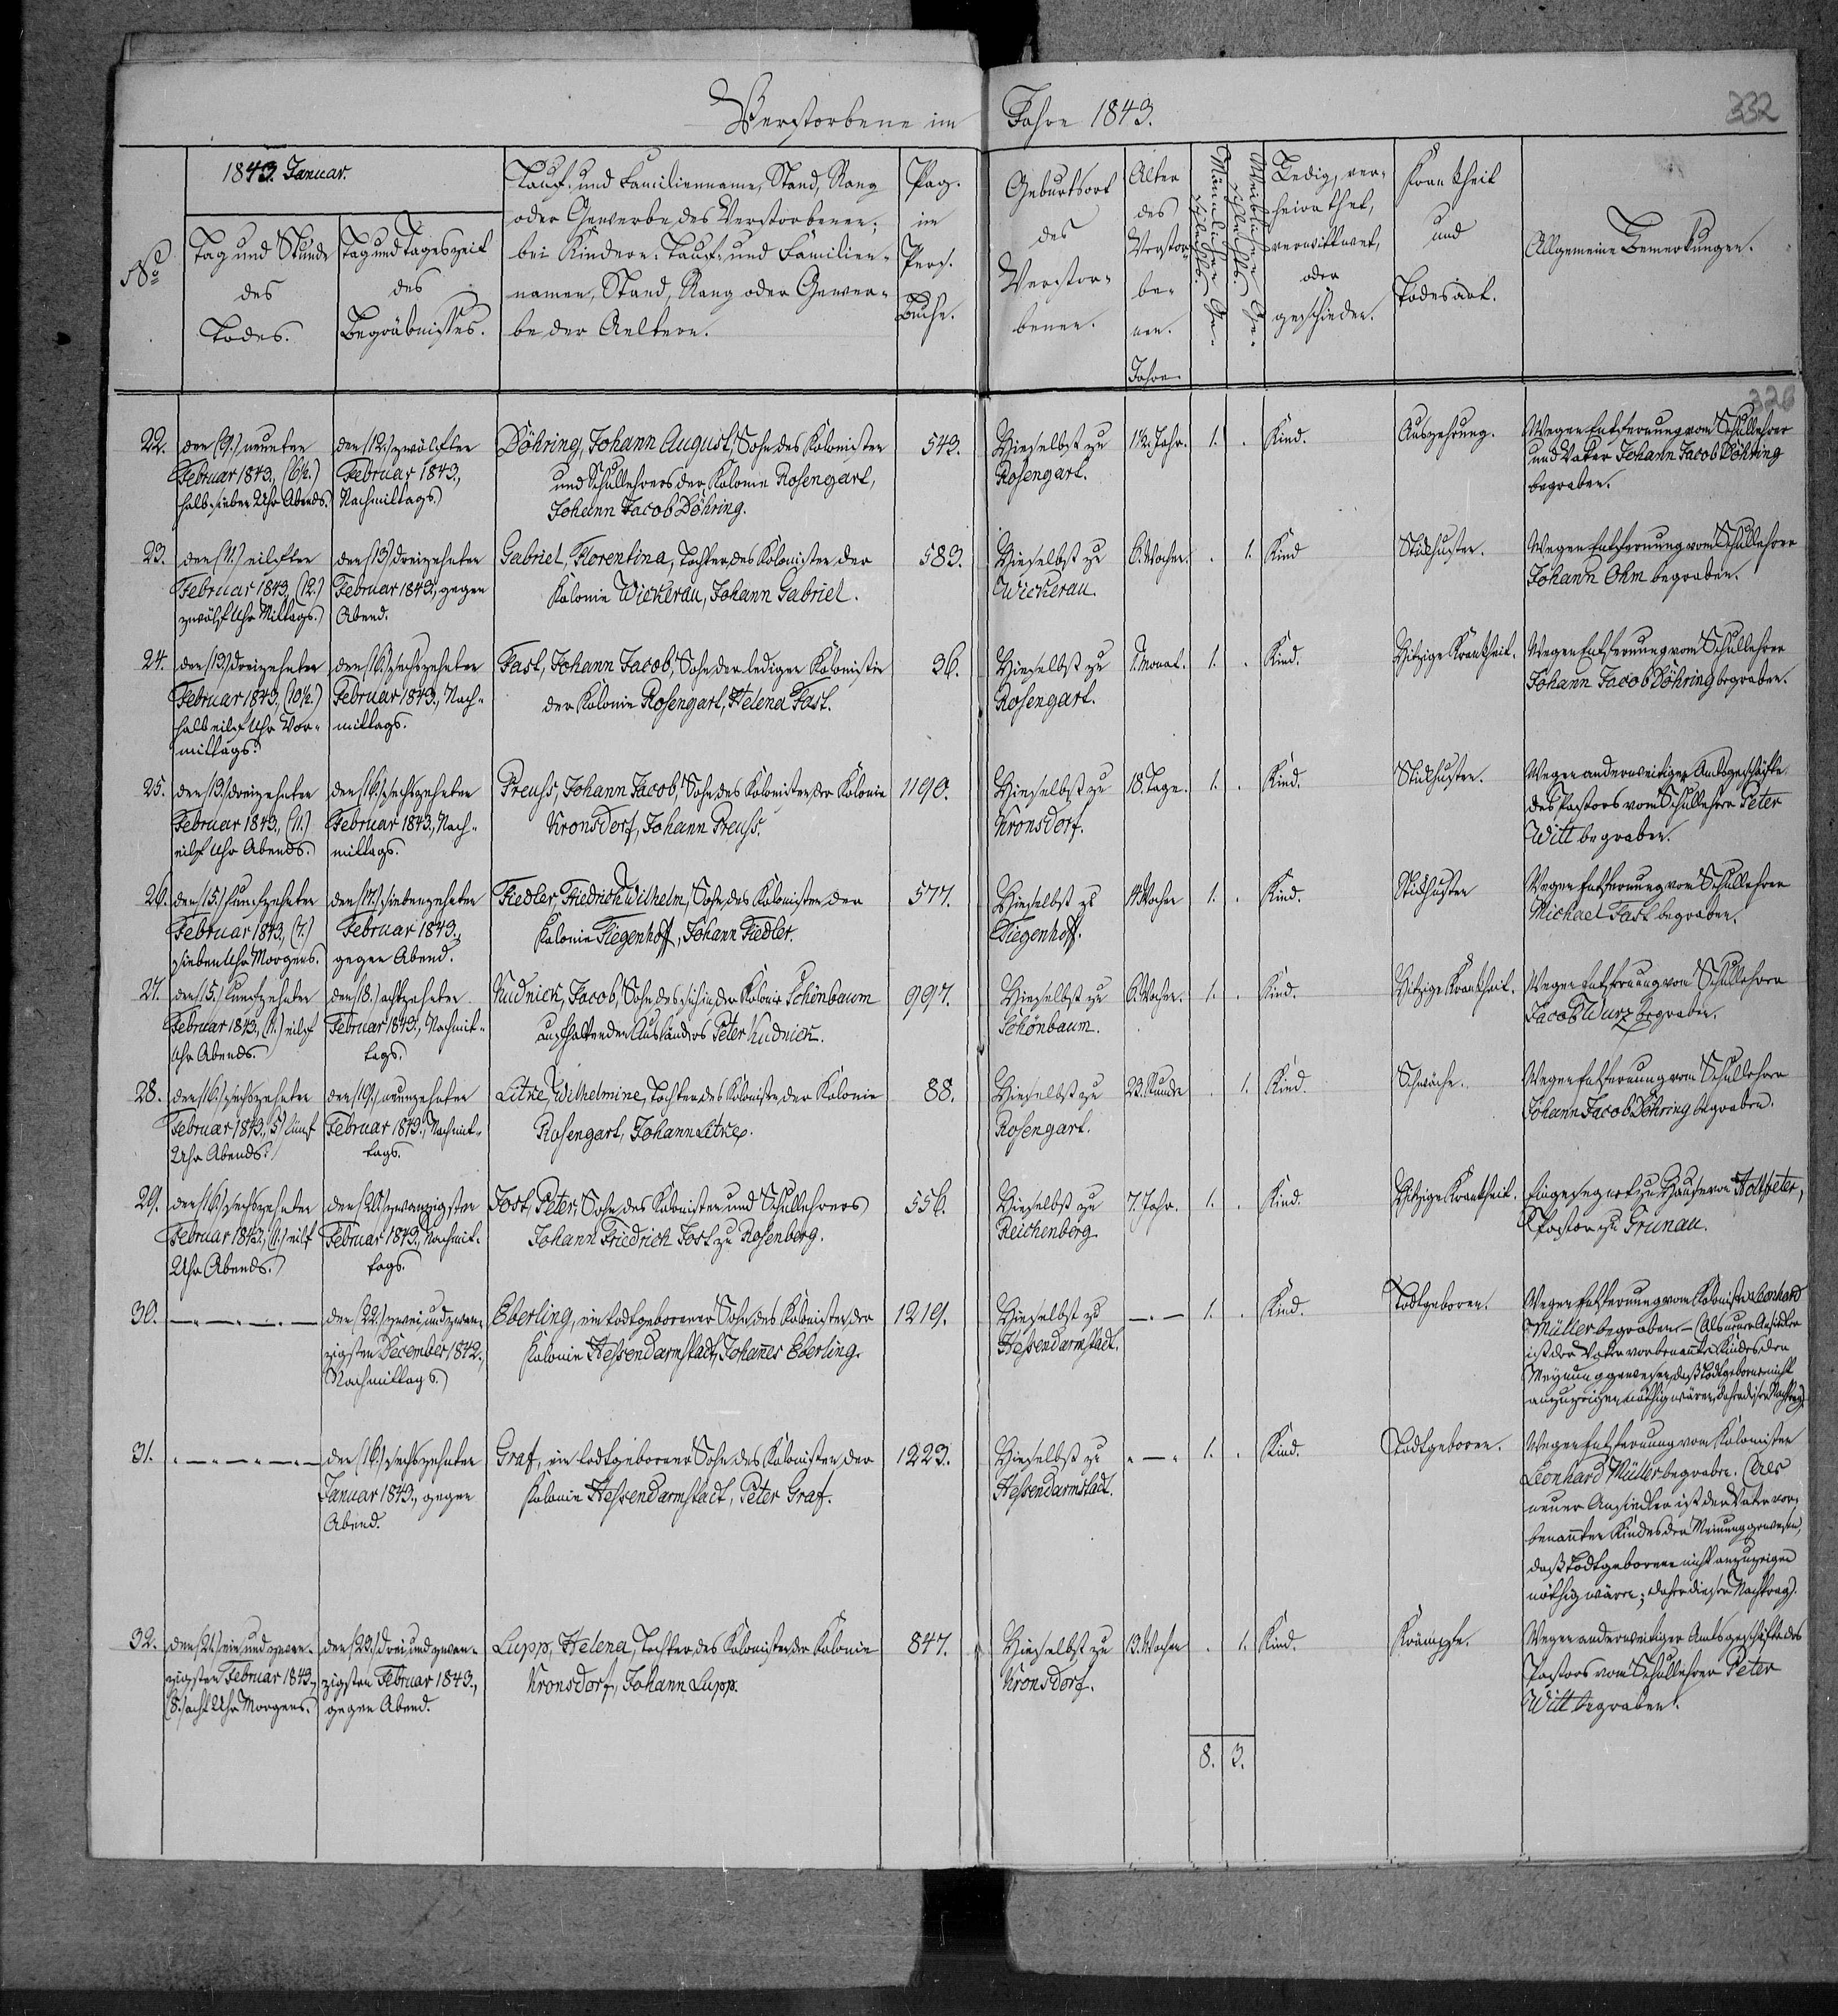 Verstorbene im Jahre 1843.
332
No
1843. Januar.
Tag und Stunde
des
Todes.
Tag und Tageszeit
des
Begräbnisses.
Tauf- und Familienname, Stand, Rang
oder Gewerbe des Verstorbenen;
bei Kindern: Tauf- und Familien-
namen, Stand, Rang oder Gewer-
be der Aeltern.
Pag.
im
Pers.
Buche.
Geburtsort
des
Verstor-
benen.
Alter
des
Verstor-
be-
nen.
Jahre.
Männlichen Ge-
schlechts.
Weiblichen Ge-
schlechts.
Ledig, ver-
heirathet,
verwittwet,
oder
geschieden.
Krankheit
und
Todesart.
Allgemeine Bemerkungen.
326
22.
den (9.) neunten
Februar 1843, (6½.)
halb sieben Uhr Abends.
den (12.) zwölften
Februar 1843,
Nachmittags.
Döhring, Johann August, Sohn des Kolonisten
und Schullehrers der Kolonie Rosengart,
Johann Jacob Döhring.
543.
Hieselbst zu
Rosengart.
1½. Jahr.
1.
.
Kind.
Auszehrung.
Wegen Entfernung vom Schullehrer
und Vater Johann Jacob Döhring
begraben.
23.
den (11.) eilften
Februar 1843, (12.)
zwölf Uhr Mittags.
den (13.) dreizehnten
Februar 1843, gegen
Abend.
Gabriel, Florentina, Tochter des Kolonisten der
Kolonie Wickerau, Johann Gabriel.
583.
Hieselbst zu
Wickerau.
6. Wochen.
.
1.
Kind
Stickhusten.
Wegen Entfernung vom Schullehrer
Johann Ohm begraben.
24.
den (13.) dreizehnten
Februar 1843, (10½.)
halb eilf Uhr Vor-
mittags.
den (16.) sechszehnten
Februar 1843, Nach-
mittags.
Fast, Johann Jacob, Sohn der ledigen Kolonistin
der Kolonie Rosengart, Helena Fast.
36.
Hieselbst zu
Rosengart.
1. Monat.
1.
.
Kind.
Hitzige Krankheit.
Wegen Entfernung vom Schullehrer
Johann Jacob Döhring begraben.
25.
den (13.) dreizehnten
Februar 1843, (11.)
eilf Uhr Abends.
den (16.) sechszehnten
Februar 1843, Nach-
mittags.
Preuss, Johann Jacob, Sohn des Kolonisten der Kolonie
Kronsdorf, Johann Preuss.
1190.
Hieselbst zu
Kronsdorf.
18. Tage.
1.
.
Kind.
Stickhusten.
Wegen anderweitiger Amtsgeschäfte
des Pastors vom Schullehrer Peter
Witt begraben.
26.
den (15.) funfzehnten
Februar 1843, (7.)
sieben Uhr Morgens.
den (17.) siebenzehnten
Februar 1843,
gegen Abend.
Fiedler, Friedrich Wilhelm, Sohn des Kolonisten der
Kolonie Tiegenhoff, Johann Fiedler.
577.
Hieselbst zu
Tiegenhoff.
4. Wochen
1.
.
Kind.
Stickhusten
Wegen Entfernung vom Schullehrer
Michael Fast begraben.
27.
den (15.) funfzehnten
Februar 1843, (11.) eilf
Uhr Abends.
den (18.) achtzehnten
Februar 1843, Nachmit-
tags.
Kudnick, Jacob, Sohn des sich in der Kolonie Schönbaum
aufhaltenden Ausländers Peter Kudnick.
997.
Hieselbst zu
Schönbaum.
6. Wochen.
1.
.
Kind.
Hitzige Krankheit.
Wegen Entfernung vom Schullehrer
Jacob Wurz begraben.
28.
den (16.) sechszehnten
Februar 1843, (5.) fünf
Uhr Abends.
den (19.) neunzehnten
Februar 1843, Nachmit-
tags.
Litke, Wilhelmine, Tochter des Kolonisten der Kolonie
Rosengart, Johann Litke.
88.
Hieselbst zu
Rosengart.
23. Stunde
.
1.
Kind.
Schwäche.
Wegen Entfernung vom Schullehrer
Johann Jacob Döhring begraben.
29.
den (16.) sechszehnten
Februar 1843, (11.) eilf
Uhr Abends.
den (20.) zwanzigsten
Februar 1843, Nachmit-
tags.
Jost, Peter, Sohn des Kolonisten und Schullehrers
Johann Friedrich Jost zu Rosenberg.
556.
Hieselbst zu
Reichenberg.
7. Jahr.
1.
.
Kind.
Hitzige Krankheit.
Eingesegnet zu Hause von Holtfreter,
Pastor zu Grunau.
30.
den (22.) zwei und zwan-
zigsten December 1842.
Nachmittags.
Eberling, ein todtgeborener Sohn des Kolonisten der
Kolonie Hessendarmstadt, Johannes Eberling.
1219.
Hieselbst zu
Hessendarmstadt.
1.
.
Kind.
Todtgeboren.
Wegen Entfernung vom Kolonisten Leonhard
Müller begraben. – (Als neuer Ansiedler
ist der Vater vorbenannten Kindes der
Meinung gewesen, daß Todtgeborene nicht
anzuzeigen nöthig wären, daher dieser Nachtrag).
31.
den (16.) sechszehnten
Januar 1843, gegen
Abend.
Graf, ein todtgeborener Sohn des Kolonisten der
Kolonie Hessendarmstadt, Peter Graf.
1223.
Hieselbst zu
Hessendarmstadt.
1.
.
Kind.
Todtgeboren.
Wegen Entfernung vom Kolonisten
Leonhard Müller begraben. (Als
neuer Ansiedler ist der Vater vor-
benannten Kindes der Meinung gewesen,
daß Todtgeborene nicht anzuzeigen
nöthig wären; daher dieser Nachtrag).
32.
den (21.) ein und zwan-
zigsten Februar 1843.
(8.) acht Uhr Morgens.
den (23.) drei und zwan-
zigsten Februar 1843.,
gegen Abend.
Lupp, Helena, Tochter des Kolonisten der Kolonie
Kronsdorf, Johann Lupp.
847.
Hieselbst zu
Kronsdorf.
13. Wochen
.
1.
Kind.
Krämpfe.
Wegen anderweitiger Amtsgeschäfte des
Pastors vom Schullehrer Peter
Witt begraben.
8. 3.